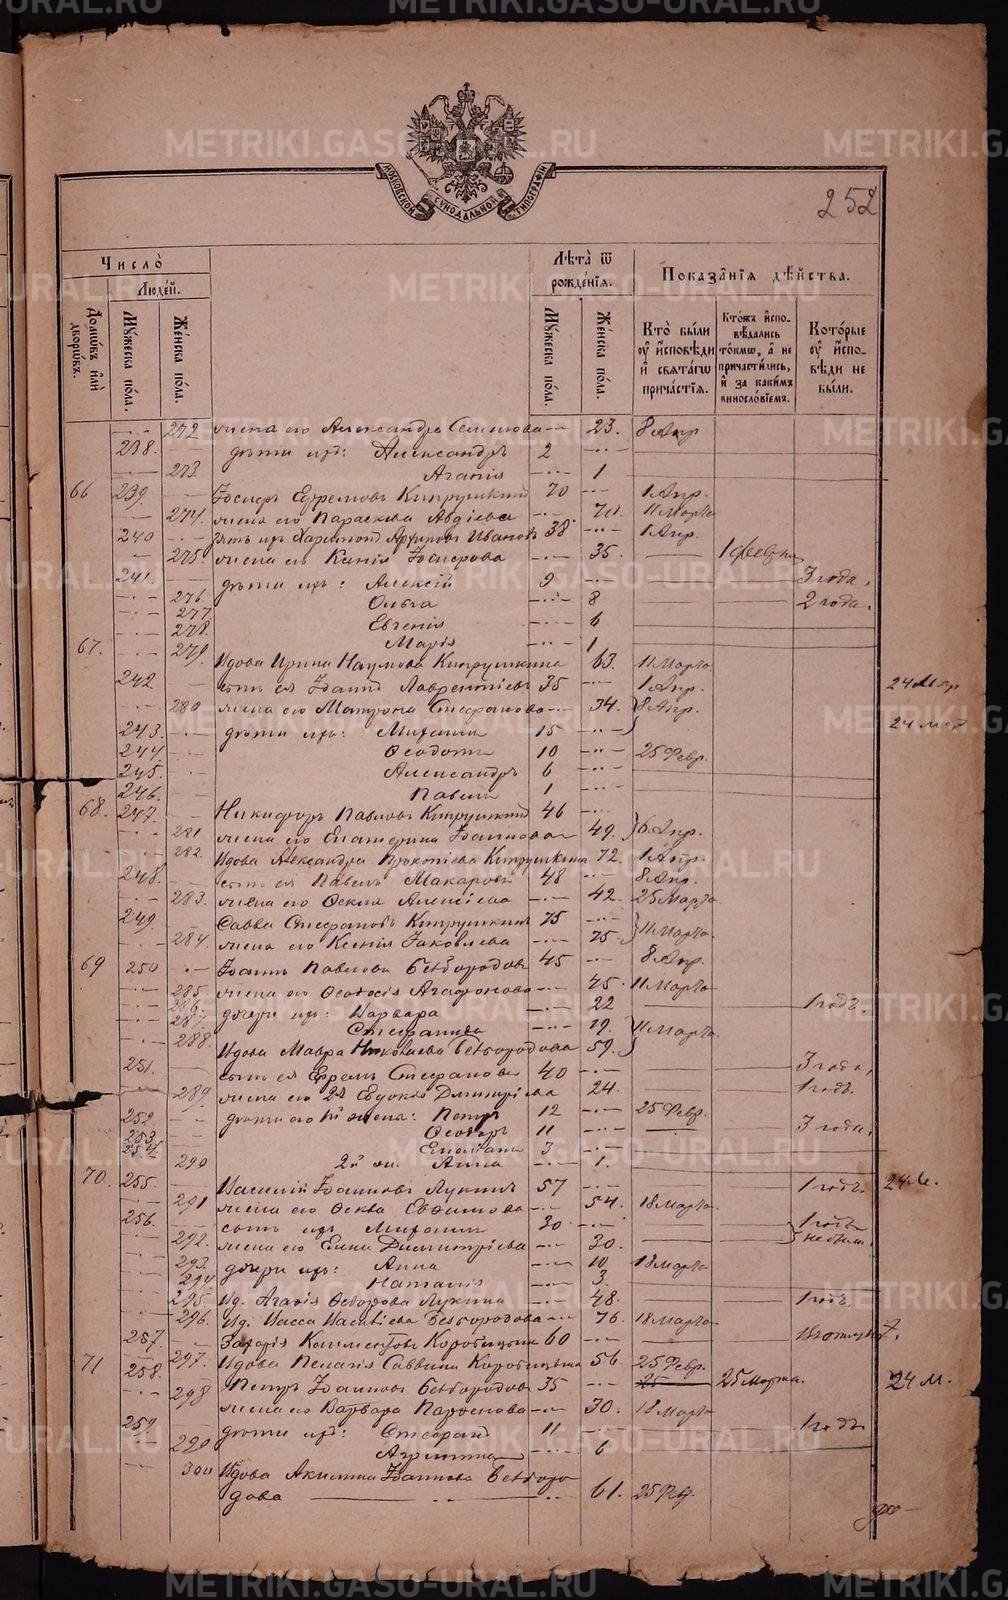 METRIKI.GASO-URAL.RU
МОСКОВСКОЙ СѴНОДАЛЬНОЙ ТИПОГРАФІИ
252
Число̀
Людей.
Домѡвъ или дворѡвъ.
Мꙋжеска пола.
Женска пола.
Лѣта ѿ рожденїѧ.
Мꙋжеска пола.
Женска пола.
Показанїѧ дѣйства.
Кто̀ были ꙋ исповѣди и свѧтагѡ причастїѧ.
Ктожъ исповѣдались токмѡ, а не причастились, и за какимъ винословїемъ.
Которые ꙋ исповѣди не были.
272 жена его Александра Семенова 23. 8 Апр
238. дѣти ихъ: Александръ 2
273 Агапія 1
66 239 Іосифъ Ефремовъ Кипрушкинъ 70 1 Апр.
274. жена его Параскева Авдіева 70. 11 Марта
240 Зять ихъ Харитонъ Иванов 38 1 Апр.
275. жена его Ксенія Іосифова 35. 1 Февр
241. дѣти ихъ: Алексій 9 3 года.
276. Ольга 8 2 года.
277 Евгенія 6
278. Марія 1
67. 279. Вдова Ирина Наумова Кипрушкина 63. 11 Марта
242 сынъ ея Іоаннъ Лаврентіевъ 35 1 Апр. 24
280 жена его Матрона Стефанова 34. 8 Апр. 24
243. дѣти ихъ: Михаилъ 15
244 Ѳеодотъ 10 25 Февр.
245. Александръ 6
246. Павелъ 1
68. 247. Никифоръ Павловъ Кипрушкинъ 46
281 жена его Екатерина Іоаннова 49. 6 Апр.
282. Вдова Александра Прокопіева Кипрушкина 72. 1 Апр.
248. сынъ ея Павелъ Макаровъ 48 8 Апр.
283. жена его Ѳекла Алексіева 42. 25 Марта
249. Савва Стефановъ Кипрушкинъ 75
284. жена его Ксенія Іаковлева 75. 11 Марта.
69 250 Іоаннъ Павловъ Безбородовъ 45 8 Апр.
285. жена его Ѳеодосія Агафонова 45. 11 Марта
286. дочери ихъ: Варвара 22 1 годъ.
287. Стефанида 19. 11 Марта
288. Вдова Мавра Николаева Безбородова 59.
251. сынъ ея Ефремъ Стефановъ 40 3 года,
289. жена его 2я Евдокія Димитріева 24. 1 годъ.
252 дѣти его 1й жена: Петръ 12 25 Февр.
253 Ѳеодоръ 11 3 года.
254. 3
290 2й ж. Анна 1.
70. 255. Василій Іоанновъ Лукинъ 57 1 годъ. 24 М.
291 жена его Ѳекла Евфимова 54. 18 Марта
256. сынъ ихъ Михаилъ 30 1 годъ
292. жена его Елена Димитріева 30. не был.
293. дочери ихъ: Анна 10 18 Марта
294 Наталія 3.
295. Вд. Агапія Ѳеодорова Лукина 48. 1 годъ.
296. Вд. Васса Васильева Безбородова 76. 18 Марта
257. Захарія Климентовъ Коробицынъ 60
297. Вдова Пелагія Саввина Коробицына 56. 25 Февр.
71 258. Петръ Іоанновъ Безбородовъ 35 25 25 Марта. 24 М.
298 жена его Варвара Парѳенова 30. 18 Марта
259. дѣти ихъ: Стефанъ 11 1 годъ
299 6
300 Вдова Акилина Іоаннова Безборо
дова 61. 25 Фев.